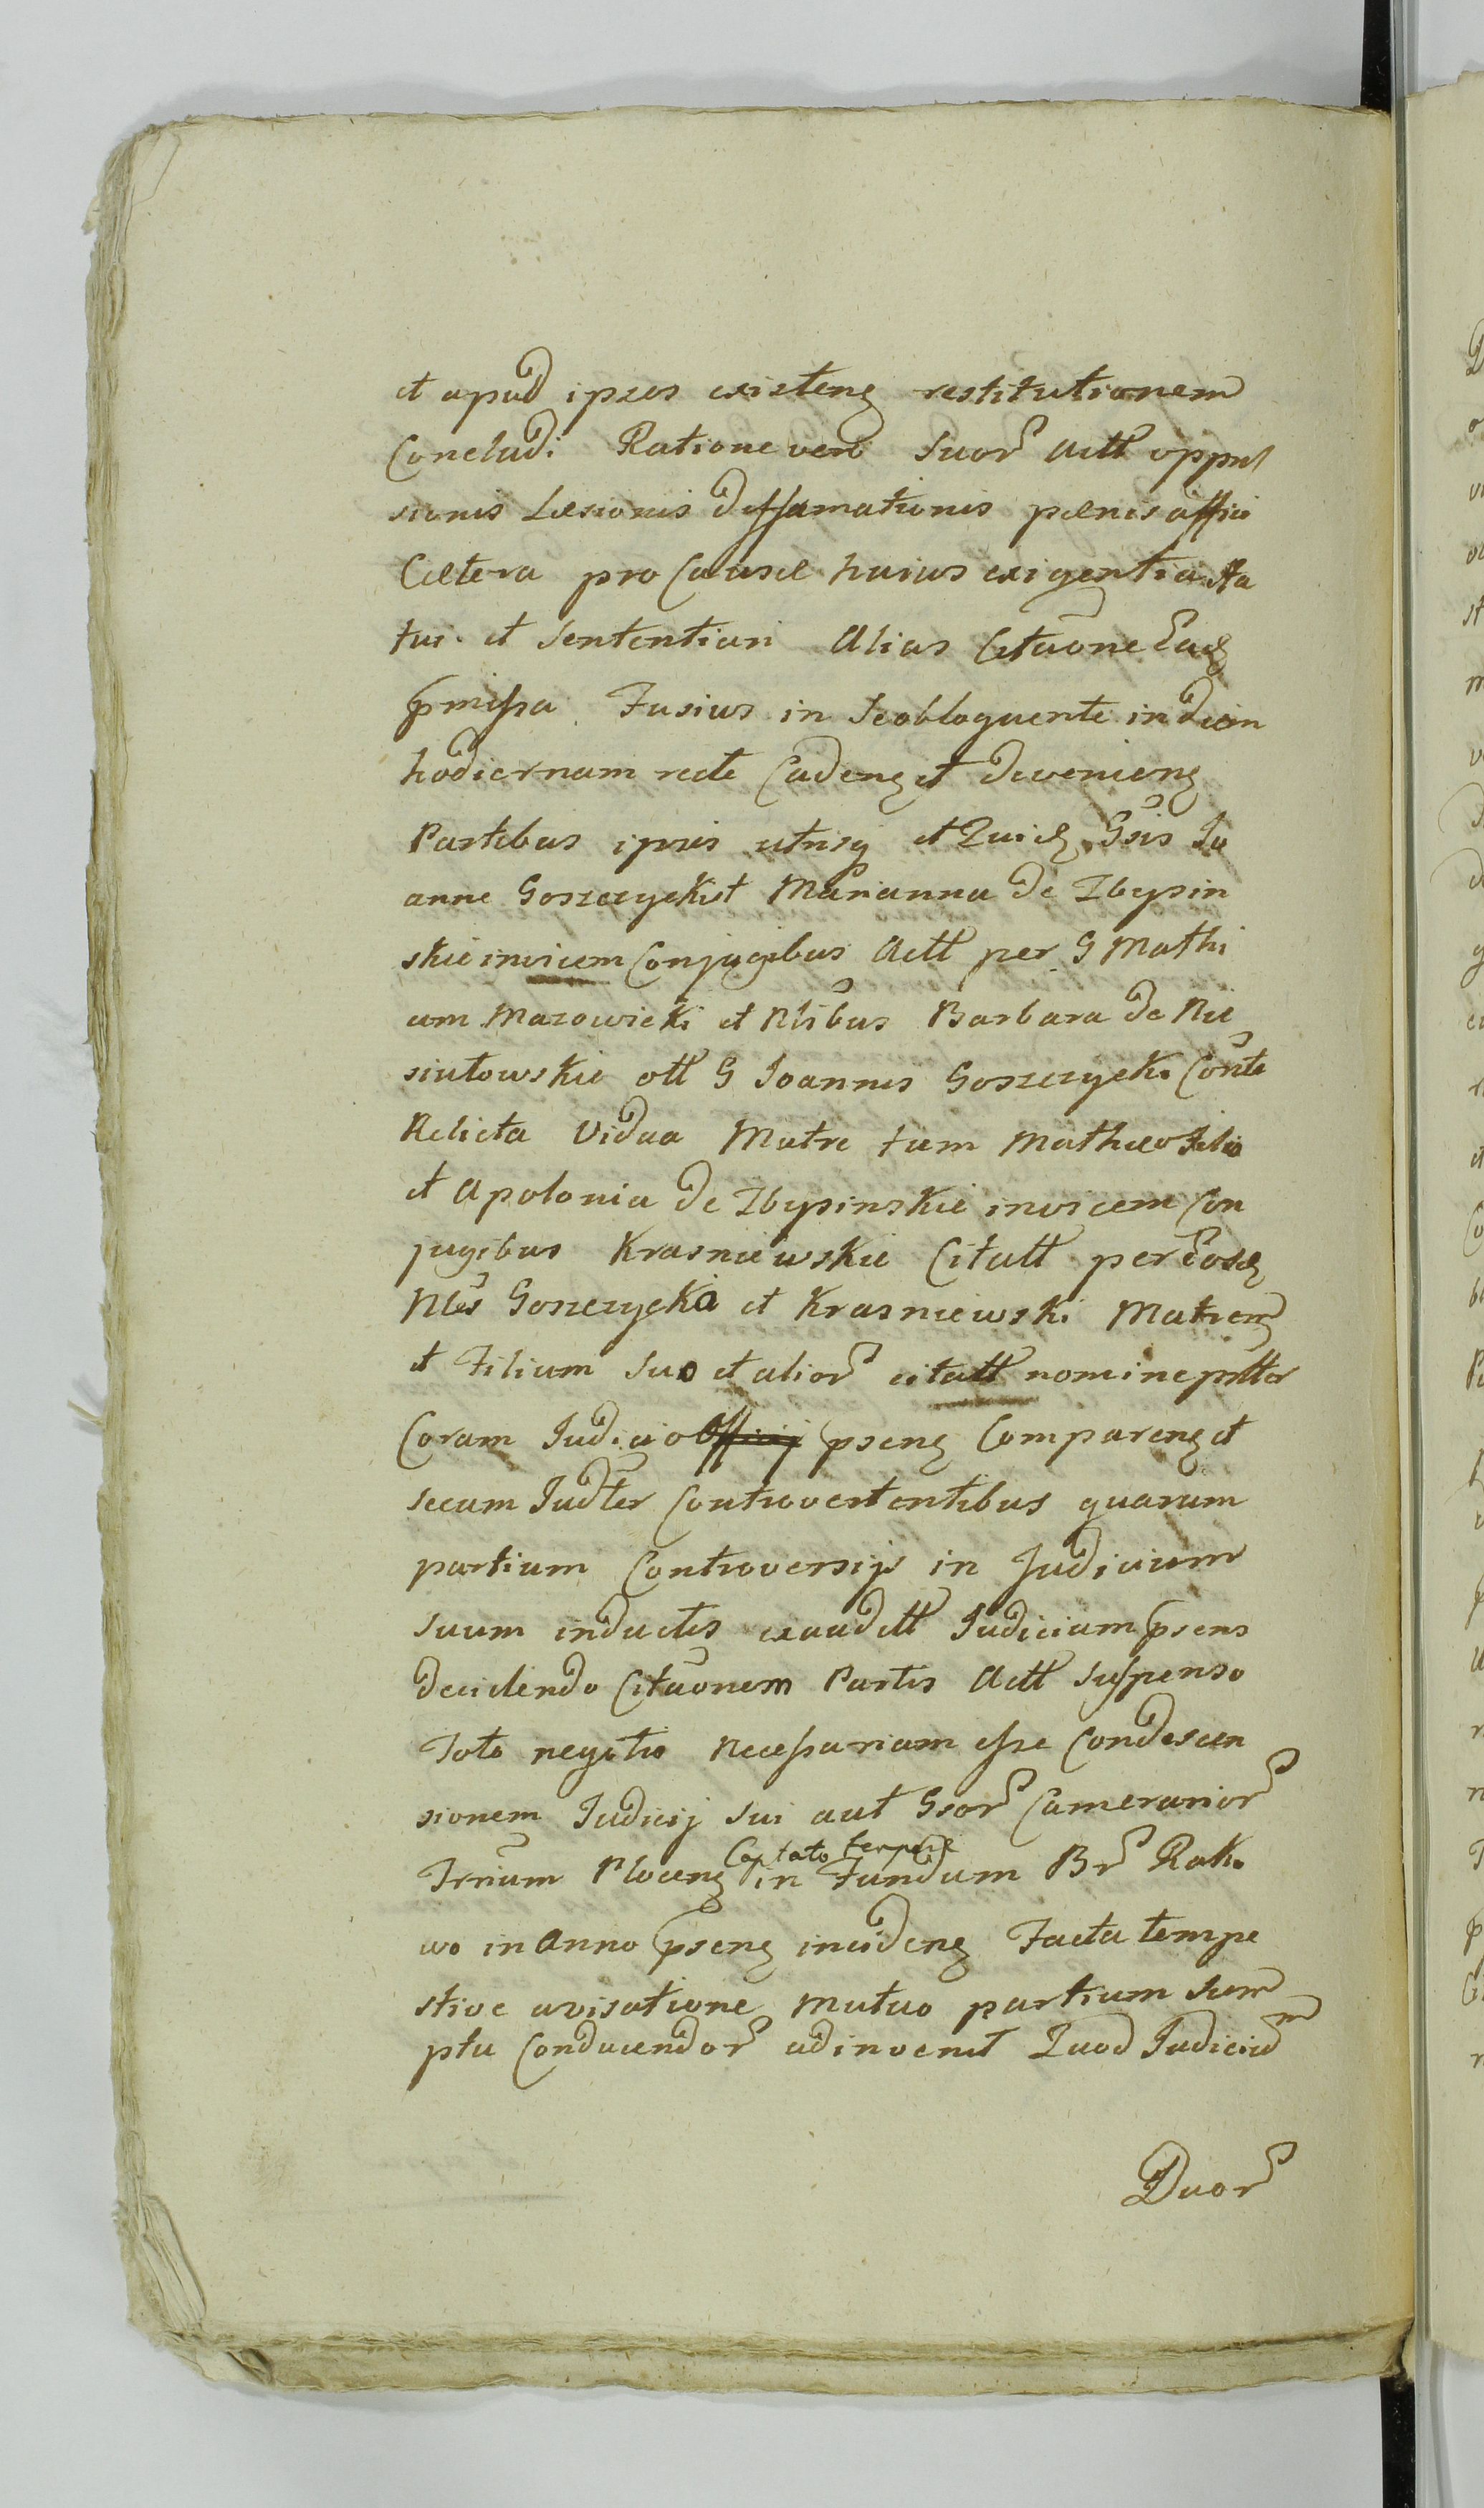 et apud ipsos existeng restitutionem
Concludi Ratione vero Suor Actt oppres
sionis Læsionis diffamationis pænis affici
Cætera pro Causæ huius exigentia sta
tui et Sententiari Alias Citaõne Eadʒ
pmissa Fusius in Se obloquente in diem
hodiernam recte Cadeng et devenieng
Partibus ipsis utrisq et Quidʒ Gsis Jo
anne Goszczycki et Marianna de Zbysin
skie invicem Conjugibus Actt per G Mathi
am Mazowiecki et Nlibus Barbara de Nie
siułowskie ott G Joannis Goszczycki Conte
Relicta Vidua Matre tum Mathæo Filio
et Apolonia de Zbysinskie invicem Con
jugibus Krasniewskie Citatt per Eosdʒ
Nles Goszczycka et Krasniewski Matrem
et Filium Suo et alior citatt nomine psltr
Coram Judicio Officij pseng Compareng et
secum Judter Controvertentibus quarum
partium Controversijs in Judicium
suum inductis exauditt Judicium psens
decidendo Citaõnem Partis Actt suspenso
Toto negotio necessariam esse Condescen
sionem Judicij sui aut Gsor Camerarior
Trrium Ploceng Captato tempore in Fundum Br Rako
wo in Anno pseng incideng Facta tempe
stive avisatione mutuo partium sum
ptu Conducendor adinvenit Quod Judicium
Duor